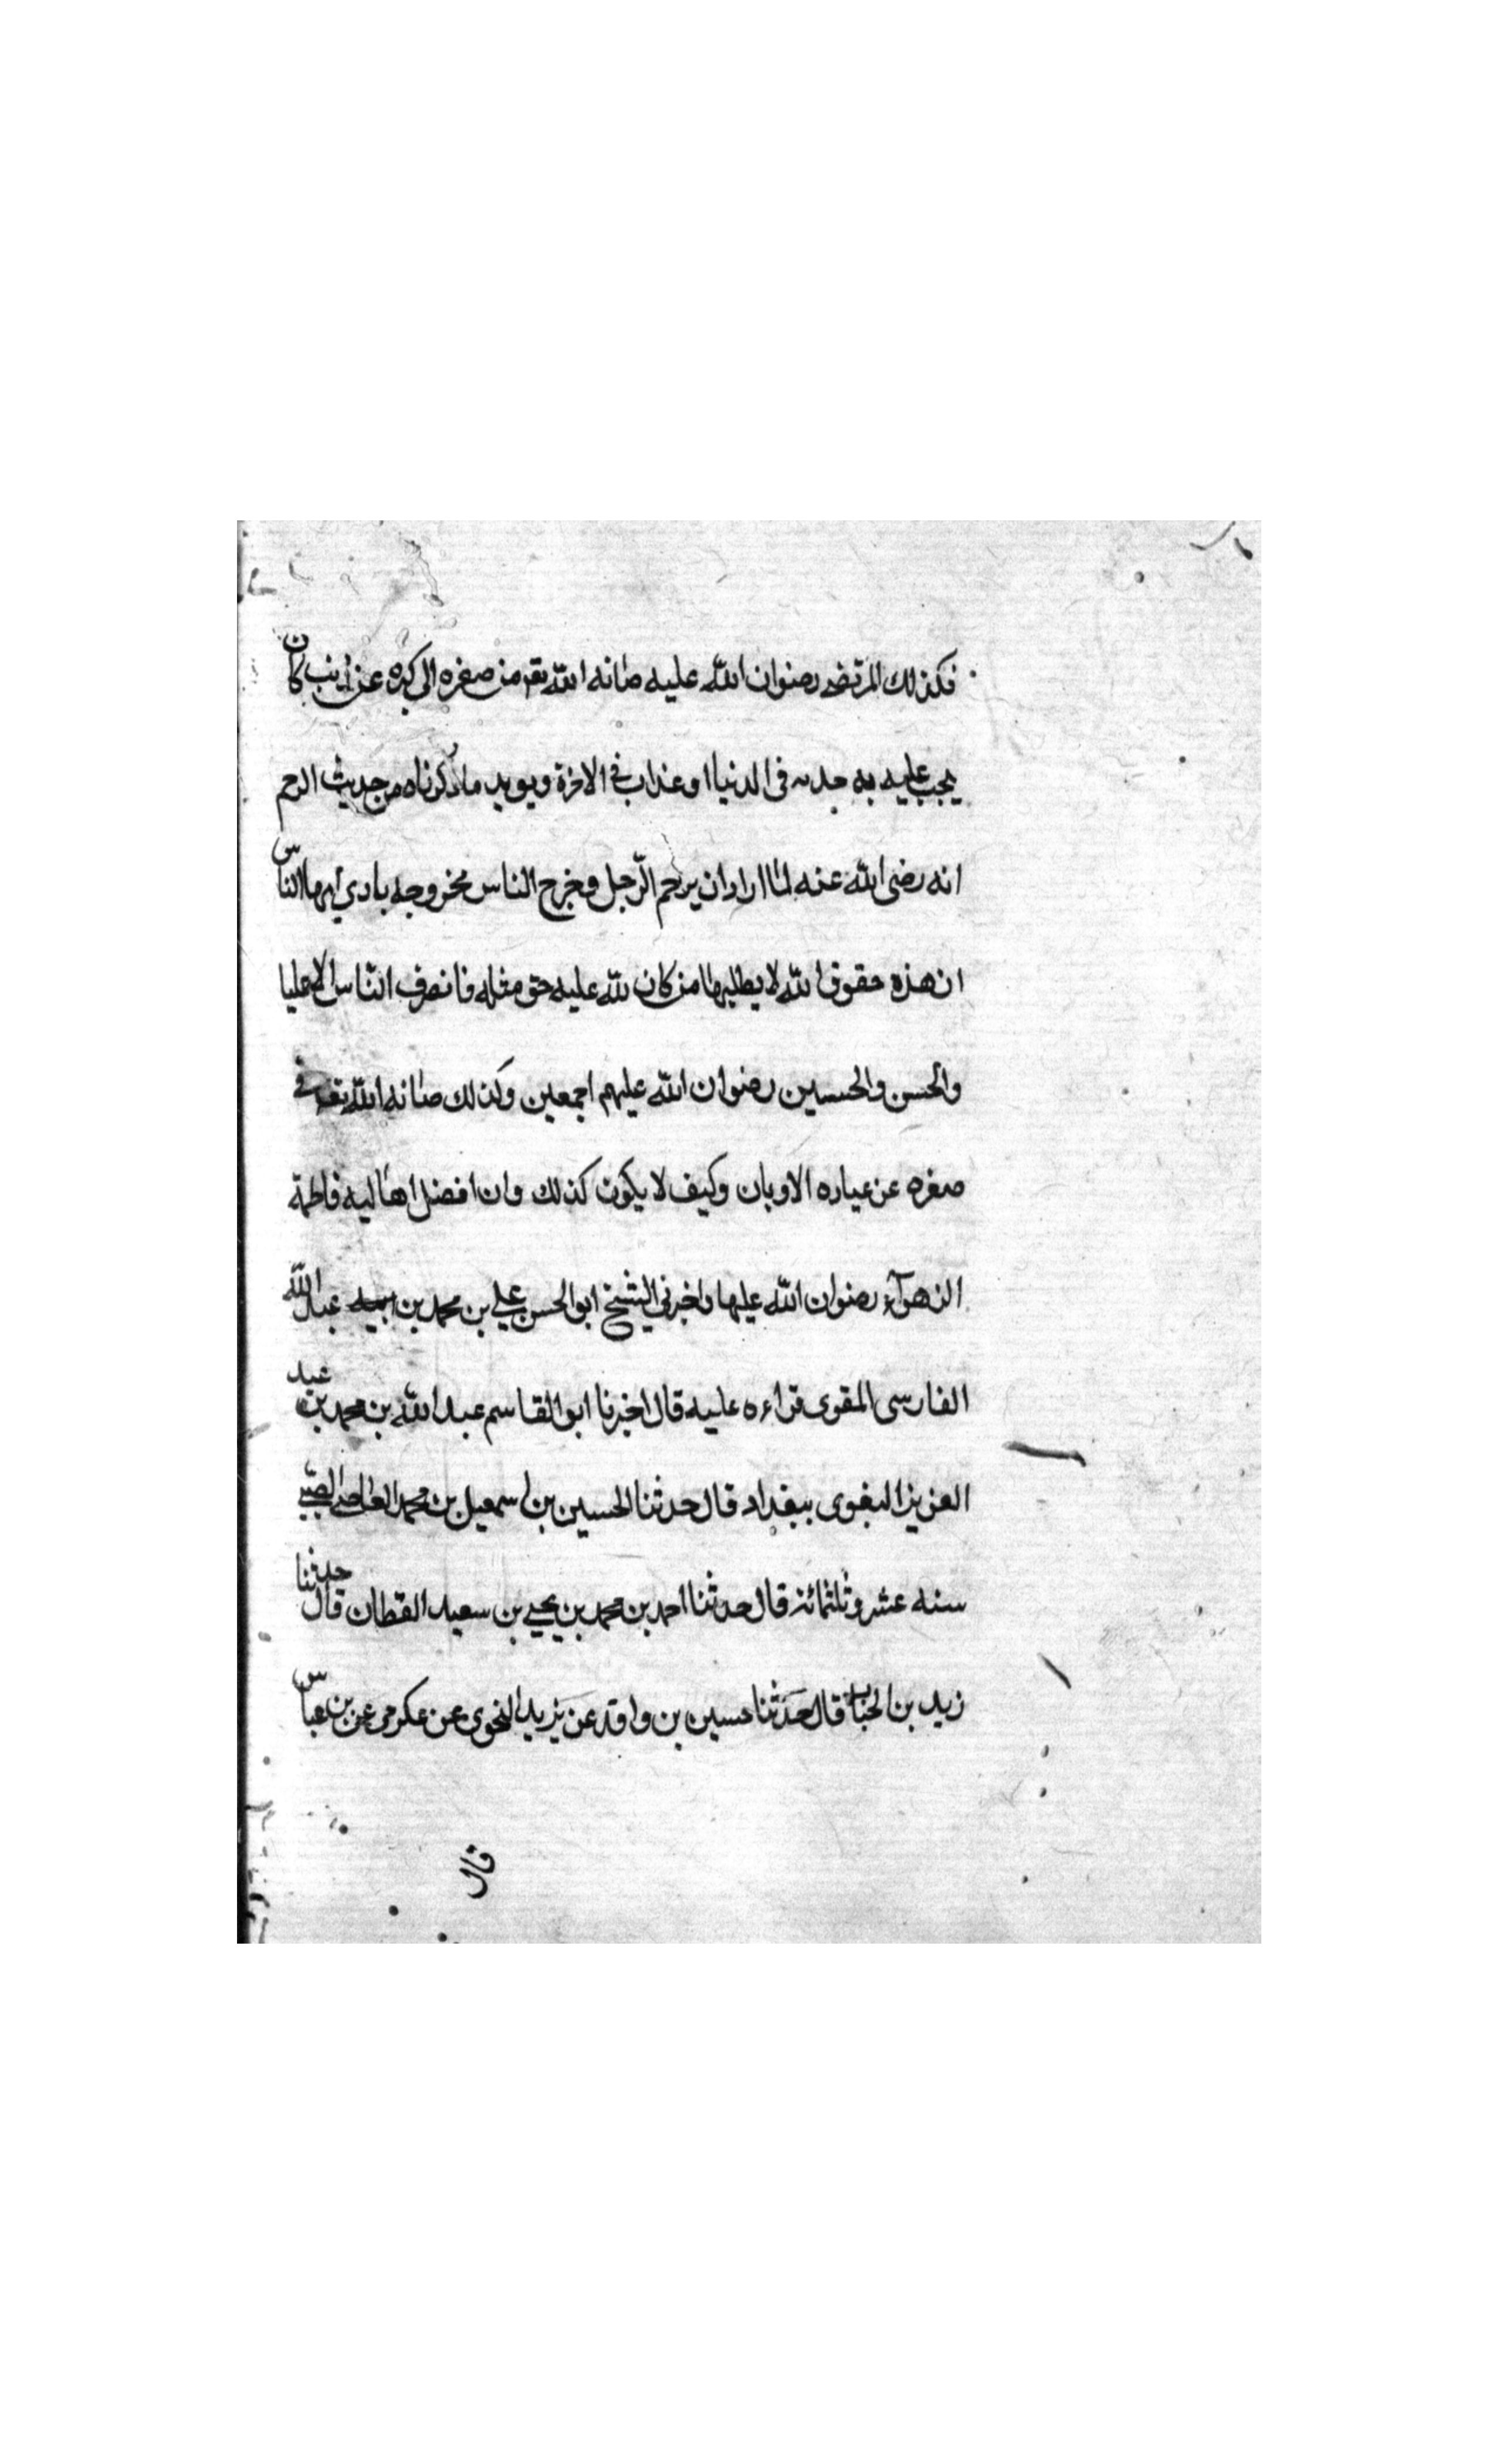 فكذلك المرتضى رضوان الله عليه صانه الله تع من صغره الى كبره عن ذنب كان
يجب عليه به جلد فى الدنيا او عذاب فى الاخرة ويويد ما ذكرناه من حديث الرجم
انه رضى الله عنه لما اراد ان يرجم الرّجل وخرج الناس مخروجه يادي ايها الناس
ان هذه حقوق الله لا يطلبها من كان لله عليه حق مثله فانصرف النّاس الا عليا
والحسن والحسين رضوان الله عليهم اجمعين وكذلك صانه الله تع فى
صغره عن عباره الاوبان وكيف لا يكون كذلك وان افضل اهاليه فاطمة
الزهرآء رضوان الله عليها واخبرني الشيخ ابو الحسن علي بن محمد بن عبد الله
الفارسى المقوى قراءه عليه قال اخبرنا ابو القاسم عبد الله بن محمد بن عبد
العزيز البغوى ببغداد قال حدثنا الحسين بن اسمعيل بن محمد الضبي
سنه عشر وثلثمائة قال حدثنا احمد بن محمد بن يحيى بن سعيد القطان قال حدثنا
زيد بن الحباب قال حَدَثنا حسين بن واقد عن يزيد النحوى عن عكرمى عن بن عباس
قال